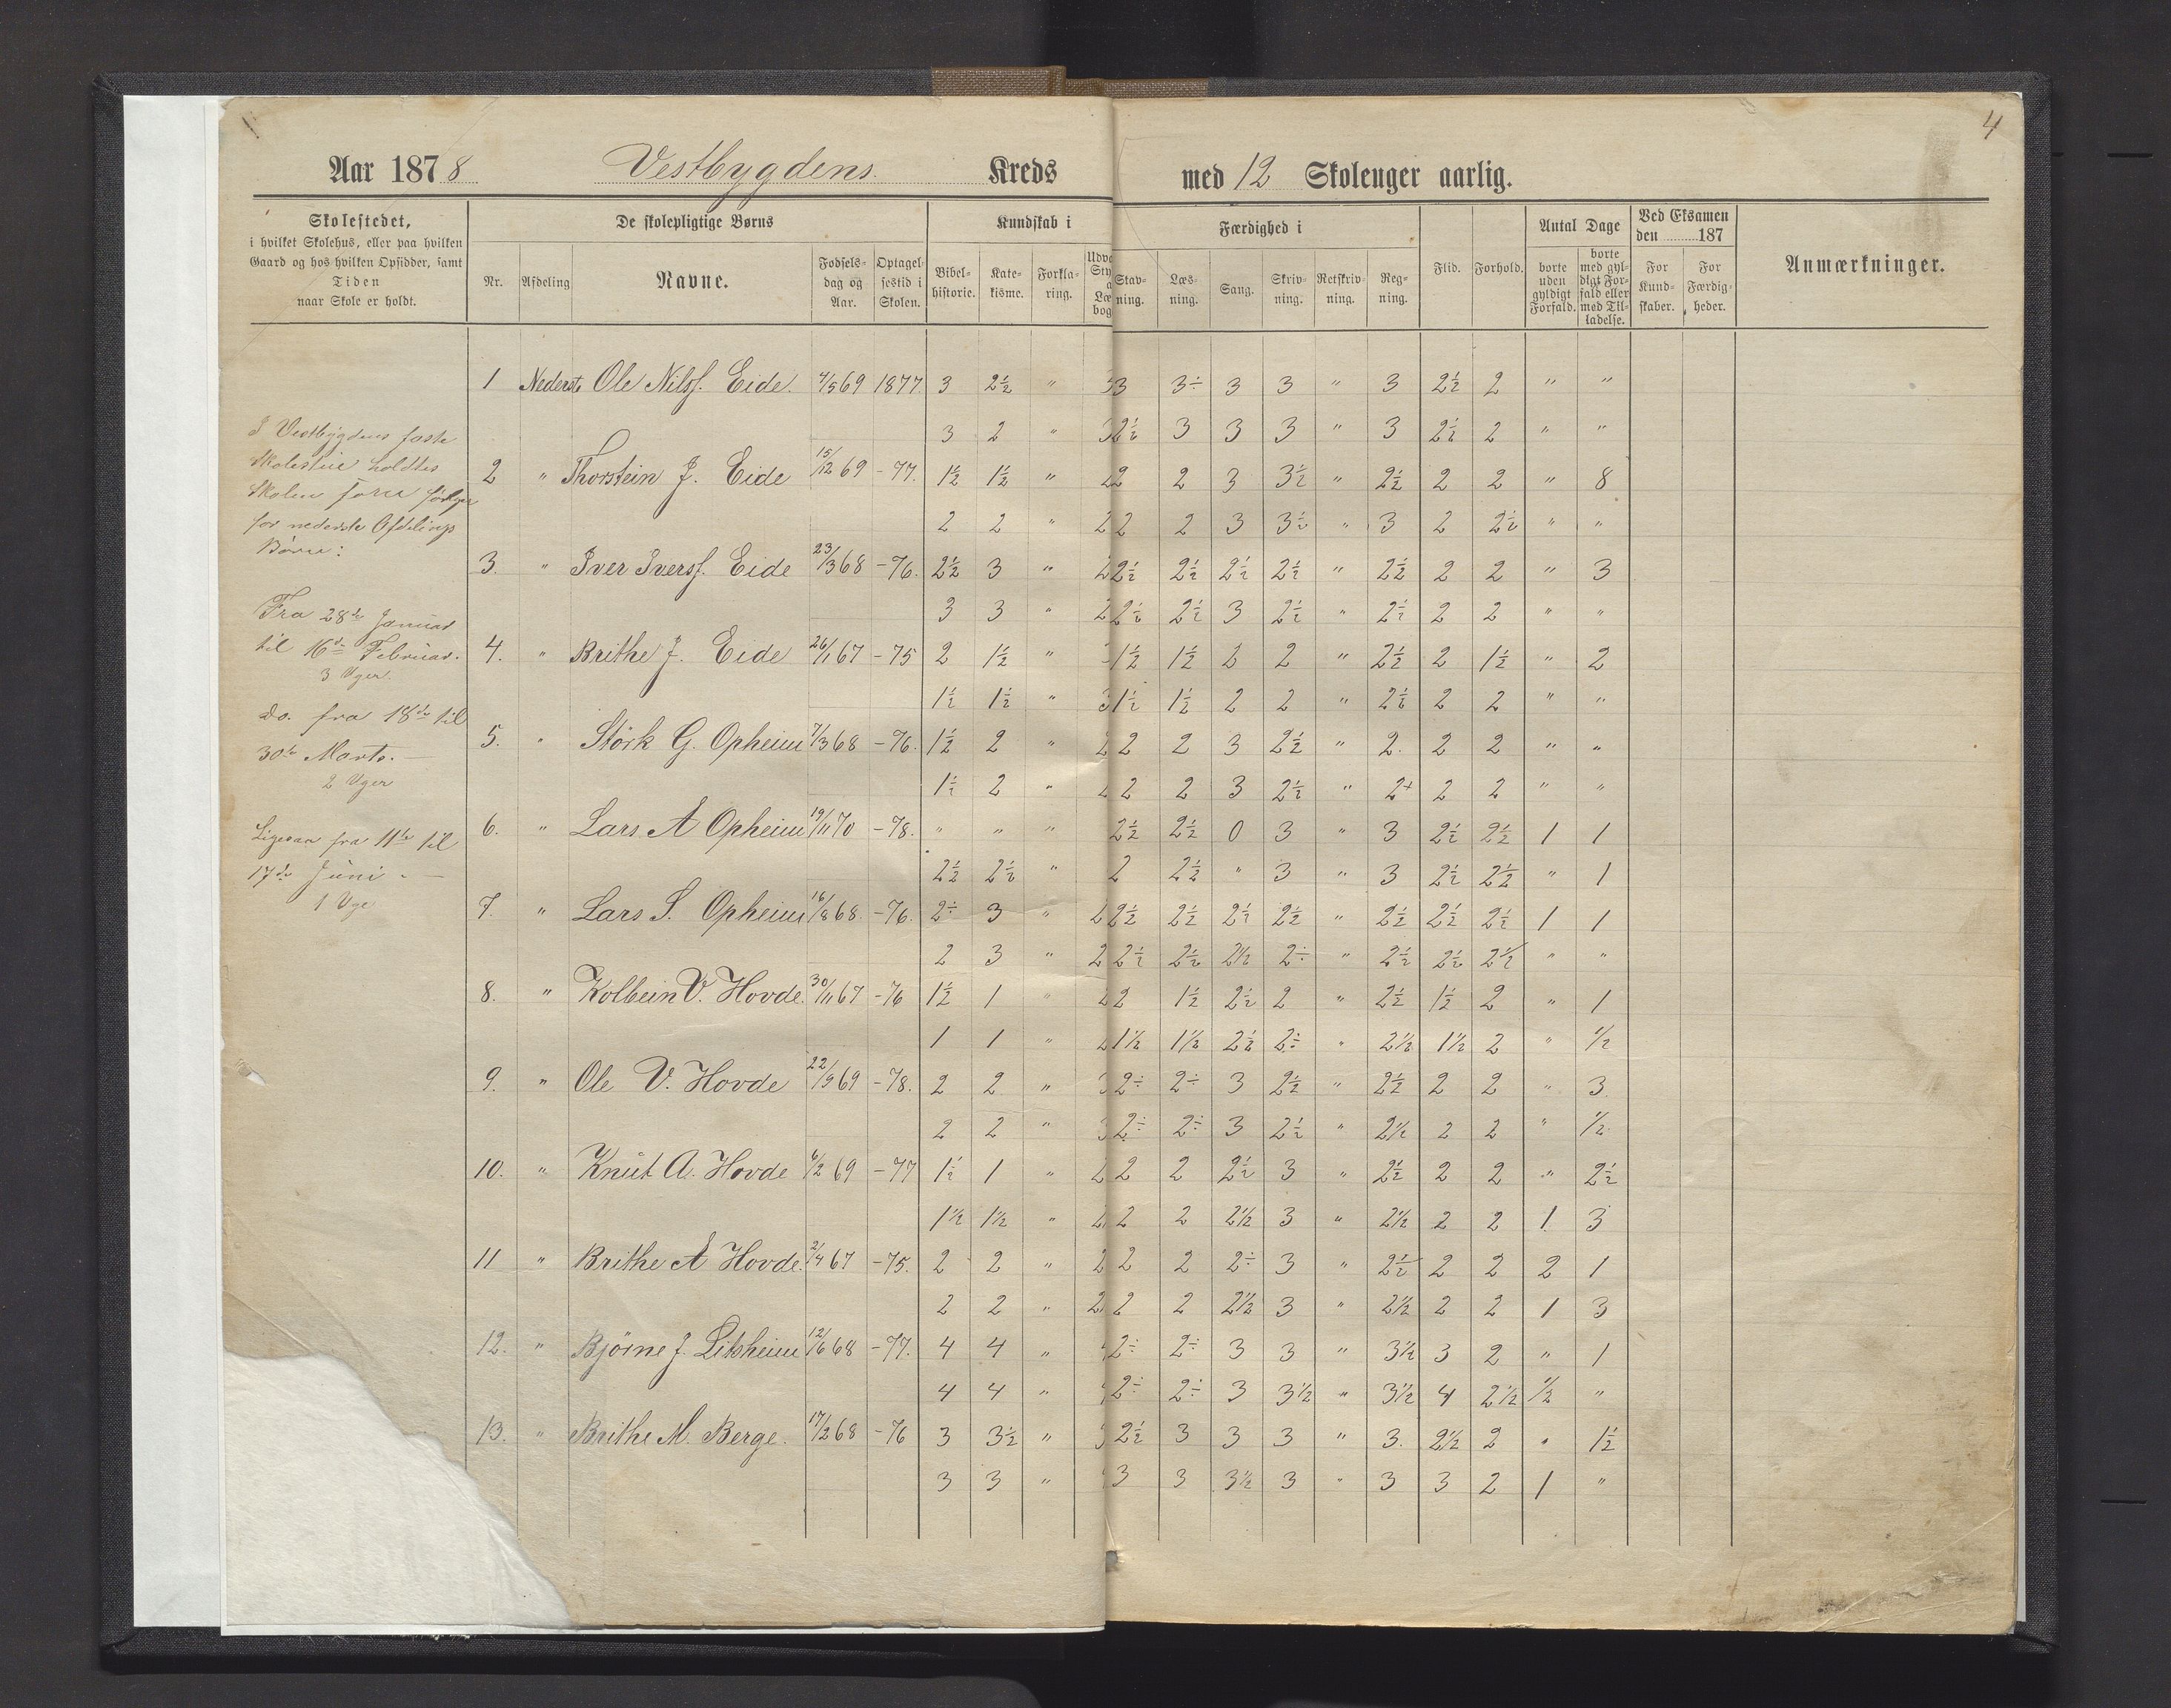 4
Aar 1878 Vestbygdens Kreds med 12 Skoleuger aarlig.
Skolestedet,
i hvilket Skolehus, eller paa hvilken
Gaard og hos hvilken Opsidder, samt
Tiden
naar Skole er holdt.
De skolepligtige Børns
Nr. Afdeling Navne. Fødsels-dag og Aar. Optagel-sestid i Skolen.
Kundskab i
Bibel-historie. Kate-kisme. Forkla-ring.
Færdighed i
Stav-ning. Læs-ning. Sang. Skriv-ning. Retskriv-ning. Reg-ning.
Flid. Forhold.
Antal Dage
borte uden gyldigt Forfald. borte med gyl-digt For-fald eller med Til-ladelse.
Ved Eksamen den 187
For Kund-skaber. For Færdig-heder.
Anmærkninger.
I Vestbygdens faste
Skolestue holdtes
Skolen
for nederste Afdelings
Børn:
Fra 28de Januar
til 16de Februar.
3 Uger.
do. fra 18de til
30te Marts. —
2 Uger
Ligesaa fra 11te til
17de Juni. —
1 Uge
1 Nederste Ole Nilss. Eide. 4/5 69 1877. 3 2½ " 3 3 3÷ 3 3 " 3 2½ 2 " "
3 2 " 3 2½ 3 3 3 " 3 2½ 2 " "
2 " Thorstein J. Eide 15/12 69 -77. 1½ 1½ " 2 2 2 3 3½ " 2½ 2 2 " 8
2 2 " 2 2 2 3 3½ " 3 2 2½ " "
3. " Iver Iverss. Eide 23/3 68 -76. 2½ 3 " 2 2½ 2½ 2½ 2½ " 2½ 2 2 " 3
3 3 " 2 2½ 2½ 3 2½ " 2½ 2 2 " "
4. " Brithe J. Eide 26/1 67 -75 2 1½ " 3 1½ 1½ 2 2 " 2½ 2 1½ " 2
1½ 1½ " 3 1½ 1½ 2 2 " 2½ 2 2 " "
5. " Störk G. Opheim 7/3 68 -76. 1½ 2 " 2 2 2 3 2½ " 2. 2 2 " "
1½ 2 " 2 2 2 3 2½ " 2+ 2 2 " "
6. " Lars A Opheim 19/11 70 -78. " " " 2½ 2½ 0 3 " 3 2½ 2½ 1 1
2½ 2½ " 2 2½ " 3 " 3 2½ 2½ " 1
7. " Lars S. Opheim 16/8 68. -76. 2÷ 3 " 2 2½ 2½ 2½ 2½ " 2½ 2½ 2½ 1 1
2 3 " 2 2½ 2½ 2½ 2÷ " 2½ 2½ 2½ " "
8. " Kolbein V. Hovde. 30/11 67 -76 1½ 1 " 2 2 1½ 2½ 2 " 2½ 1½ 2 " 1
1 1 " 2 1½ 1½ 2½ 2÷ " 2½ 1½ 2 " ½
9. " Ole V. Hovde 22/9 69 -78. 2 2 " 3 2÷ 2÷ 3 2½ " 2½ 2 2 " 3
2 2 " 3 2÷ 2÷ 3 2½ " 2½ 2 2 " ½
10. " Knut A. Hovde 6/2 69 -77 1½ 1 " 2 2 2 2½ 3 " 2½ 2 2 " 2½
1½ 1½ " 2 2 2 2½ 3 " 2½ 2 2 1 3
11 " Brithe A Hovde. 2/4 67 -75. 2 2 " 2 2 2 2÷ 3 " 2½ 2 2 2 1
2 2 " 2 2 2 2½ 3 " 2½ 2 2 1 3
12. " Bjørne J. Litsheim 12/6 68 -77. 4 4 " 2÷ 2÷ 3 3 " 3½ 3 2 " 1
4 4 " 2÷ 2÷ 3 3½ " 3½ 4 2½ ½ "
13. " Brithe M. Berge. 17/2 68 -76 3 3½ " 3 2½ 3 3 3 " 3. 2½ 2 " 1½
3 3 " 3 3 3½ 3 " 3 3 2 1 "